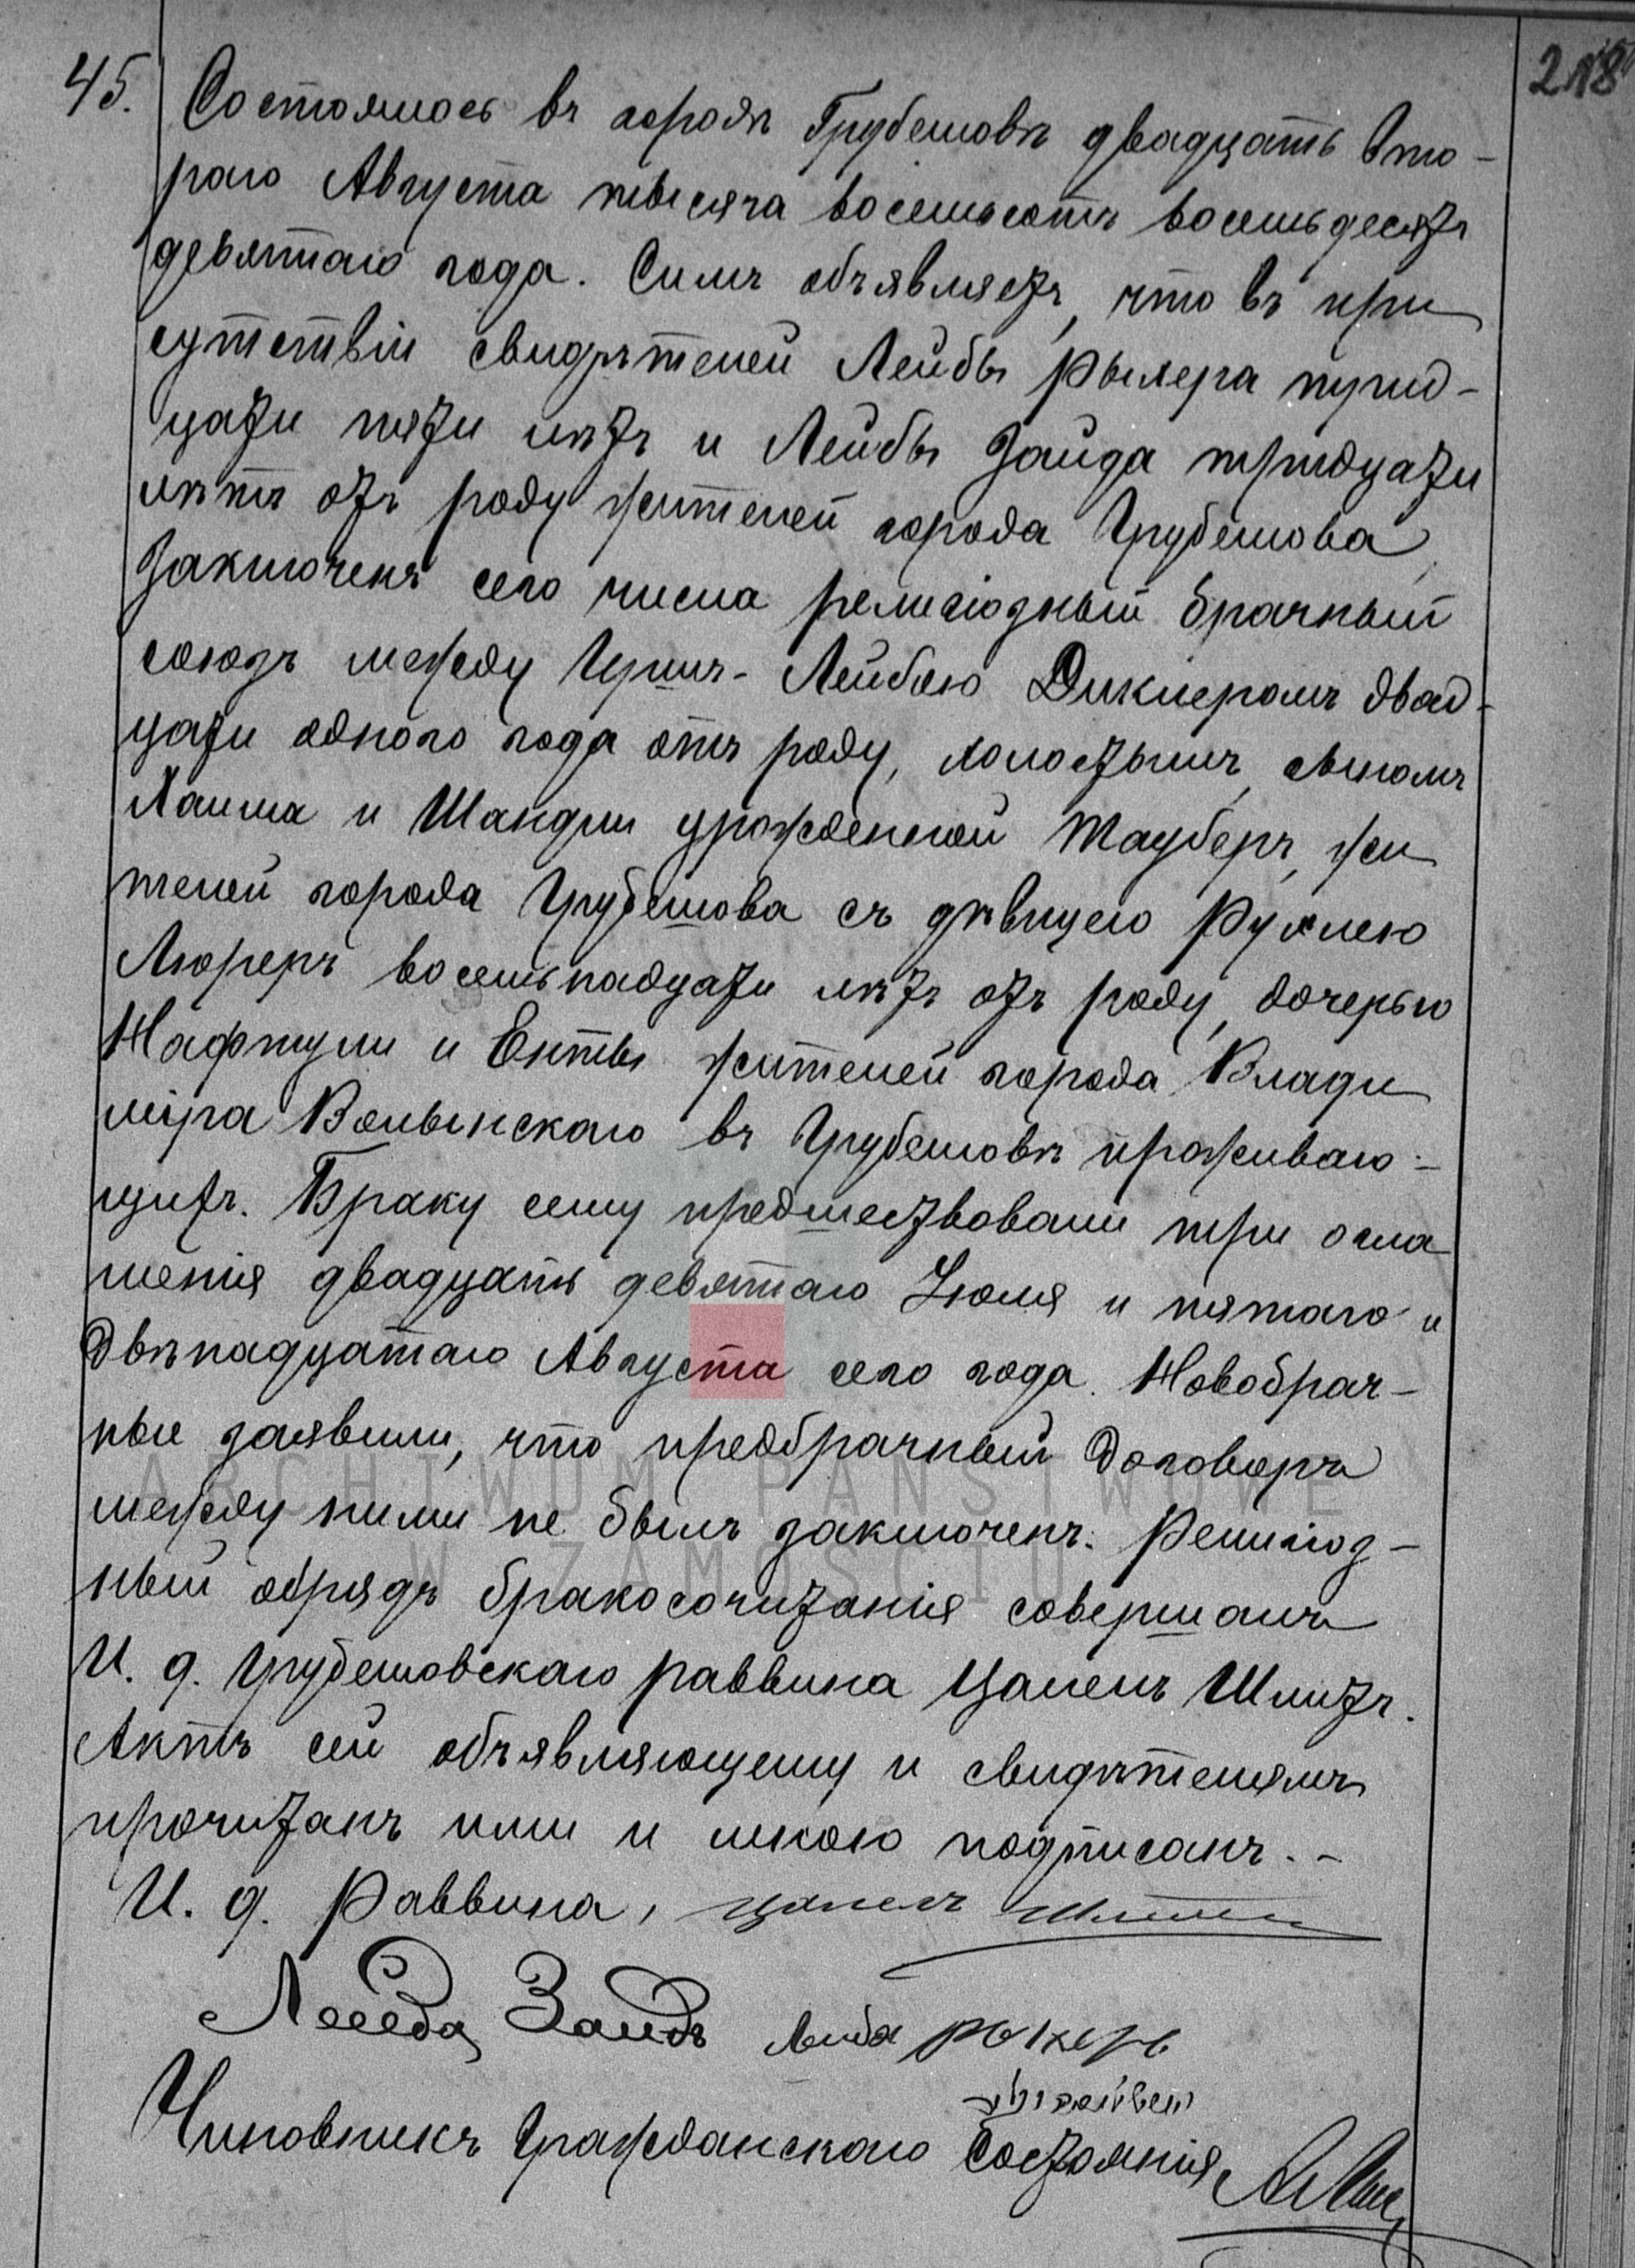 45.
218
Состоялось въ городѣ Грубешовѣ двадцать вто-
раго Августа тысяча восемьсотъ восемьдесятъ
девятаго года. Симъ объявляетъ, что въ при
сутствіи свидѣтелей Лейбы Рыхера трид-
цати пяти лѣтъ и Лейбы Зайда тридцати
лѣтъ отъ роду жителей города Грубешова,
заключенъ сего числа религіозный брачный
союзъ между Герш- Лейбою Диклеромъ двад-
цати одного года отъ роду, холостымъ, сыномъ
Хаима и Шандли урожденной Тауберъ, жи
телей города Грубешова съ дѣвицею Рухлею
Люреръ восемьнадцати лѣтъ отъ роду, дочерью
Нафтули и Енты жителей города Влади
міра Волынскаго въ Грубешовѣ проживаю-
щихъ. Браку сему предшествовали три огла
шенія двадцать девятаго Іюля и пятаго и
двѣнадцатаго Августа сего года. Новобрач-
ные заявили, что предбрачный договоръ
между ними не былъ заключенъ. Религіоз-
ный обрядъ бракосочитанія совершалъ
И. д. Грубешовскаго раввина Цалель Шлитъ.
Актъ сей объявляющему и свидѣтелямъ
прочитанъ ими и мною подписанъ. -
И. д. Раввина, Цалель
Лейба Зайдъ Лейба Рыхеръ
Чиновникъ Гражданскаго Состоянія
ARCHIWUM PAŃSTWOWE
W ZAMOŚCIU